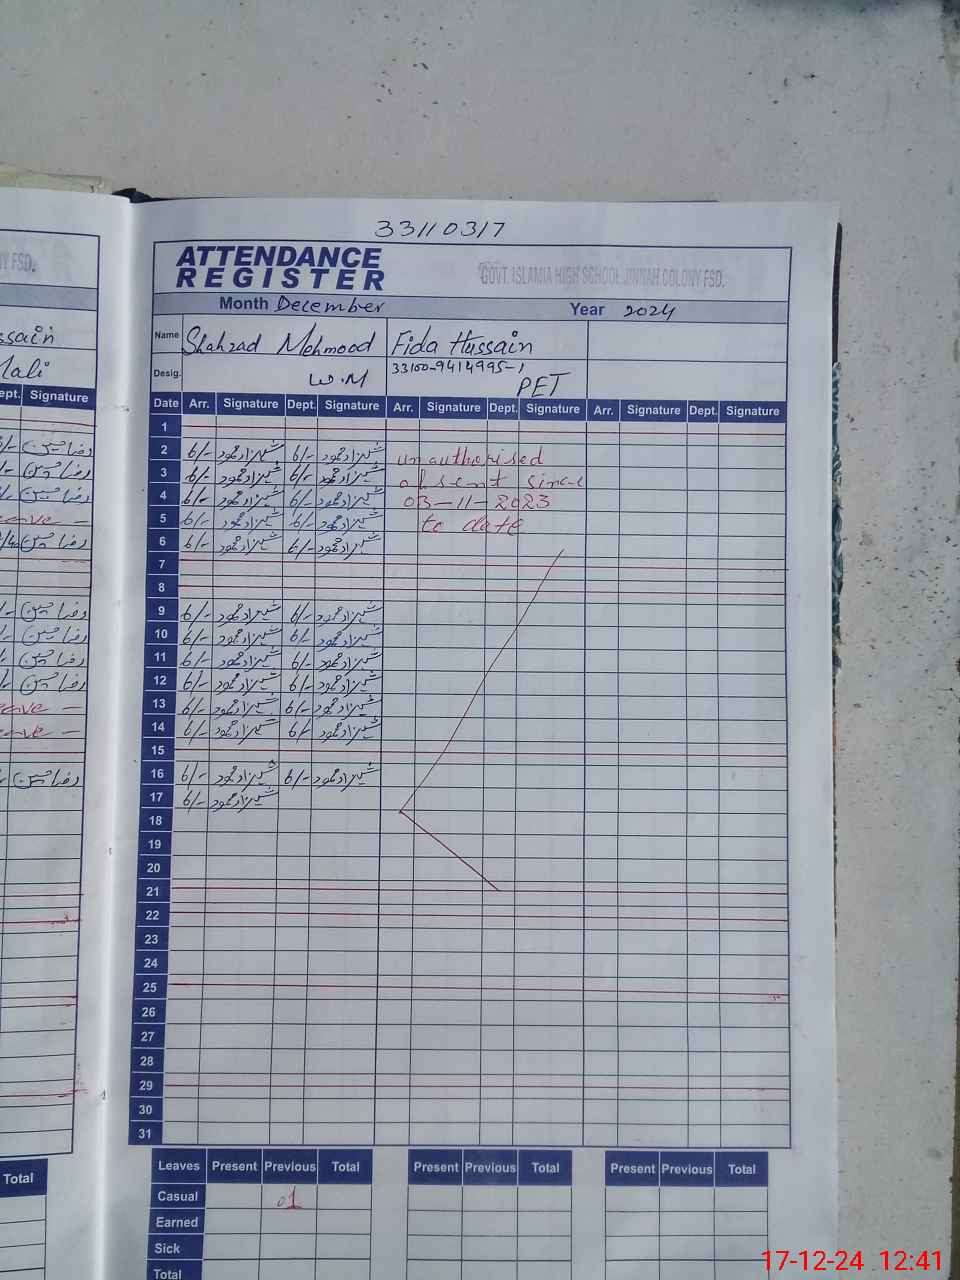 33110317
ATTENDANCE
REGISTER
GOVT. ISLAMIA HIGH SCHOOL JINNAH COLONY FSD.
Month December Year 2024
Name Shahzad Mehmood Fida Hussain
33100-9414995-1
Desig. W.M PET
Date Arr. Signature Dept. Signature Arr. Signature Dept. Signature Arr. Signature Dept. Signature
1
2 6/- شہزاد محمود 6/- شہزاد محمود unauthorised
3 6/- شہزاد محمود 6/- شہزاد محمود absent since
4 6/- شہزاد محمود 6/- شہزاد محمود 03-11-2023
5 6/- شہزاد محمود 6/- شہزاد محمود to date
6 6/- شہزاد محمود 6/- شہزاد محمود
7
8
9 6/- شہزاد محمود 6/- شہزاد محمود
10 6/- شہزاد محمود 6/- شہزاد محمود
11 6/- شہزاد محمود 6/- شہزاد محمود
12 6/- شہزاد محمود 6/- شہزاد محمود
13 6/- شہزاد محمود 6/- شہزاد محمود
14 6/- شہزاد محمود 6/- شہزاد محمود
15
16 6/- شہزاد محمود 6/- شہزاد محمود
17 6/- شہزاد محمود
18
19
20
21
22
23
24
25
26
27
28
29
30
31
Leaves Present Previous Total Present Previous Total Present Previous Total
Casual 01
Earned
Sick
Total
FSD.
ssain
Mali
ept. Signature
رضا حسین
رضا حسین
رضا حسین
eave -
رضا حسین
رضا حسین
رضا حسین
رضا حسین
رضا حسین
eave -
eave -
رضا حسین
Total
17-12-24 12:41